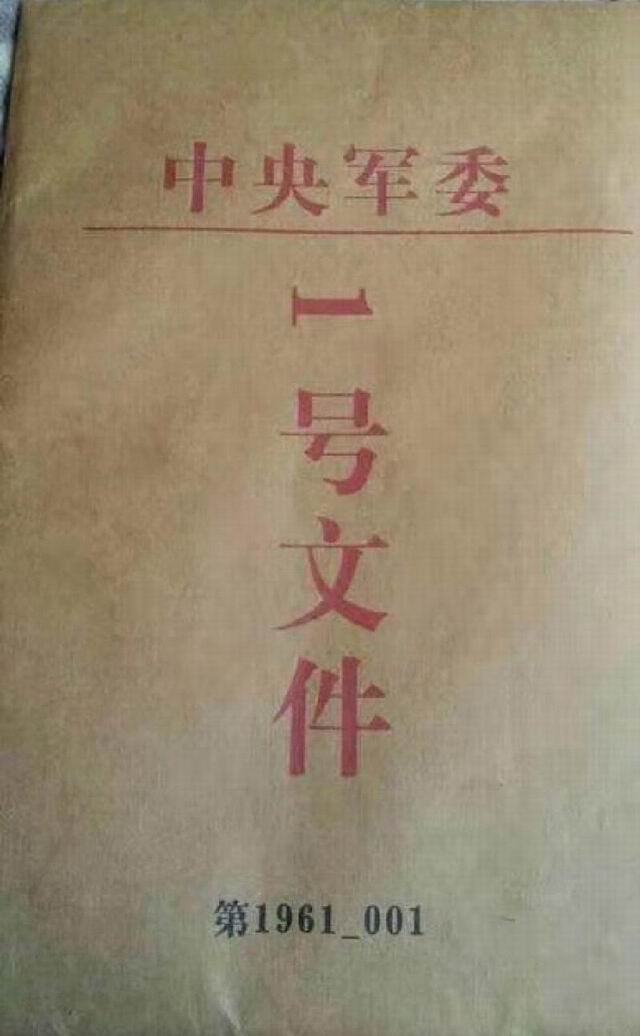 中央军委
1号文件
第1961_001